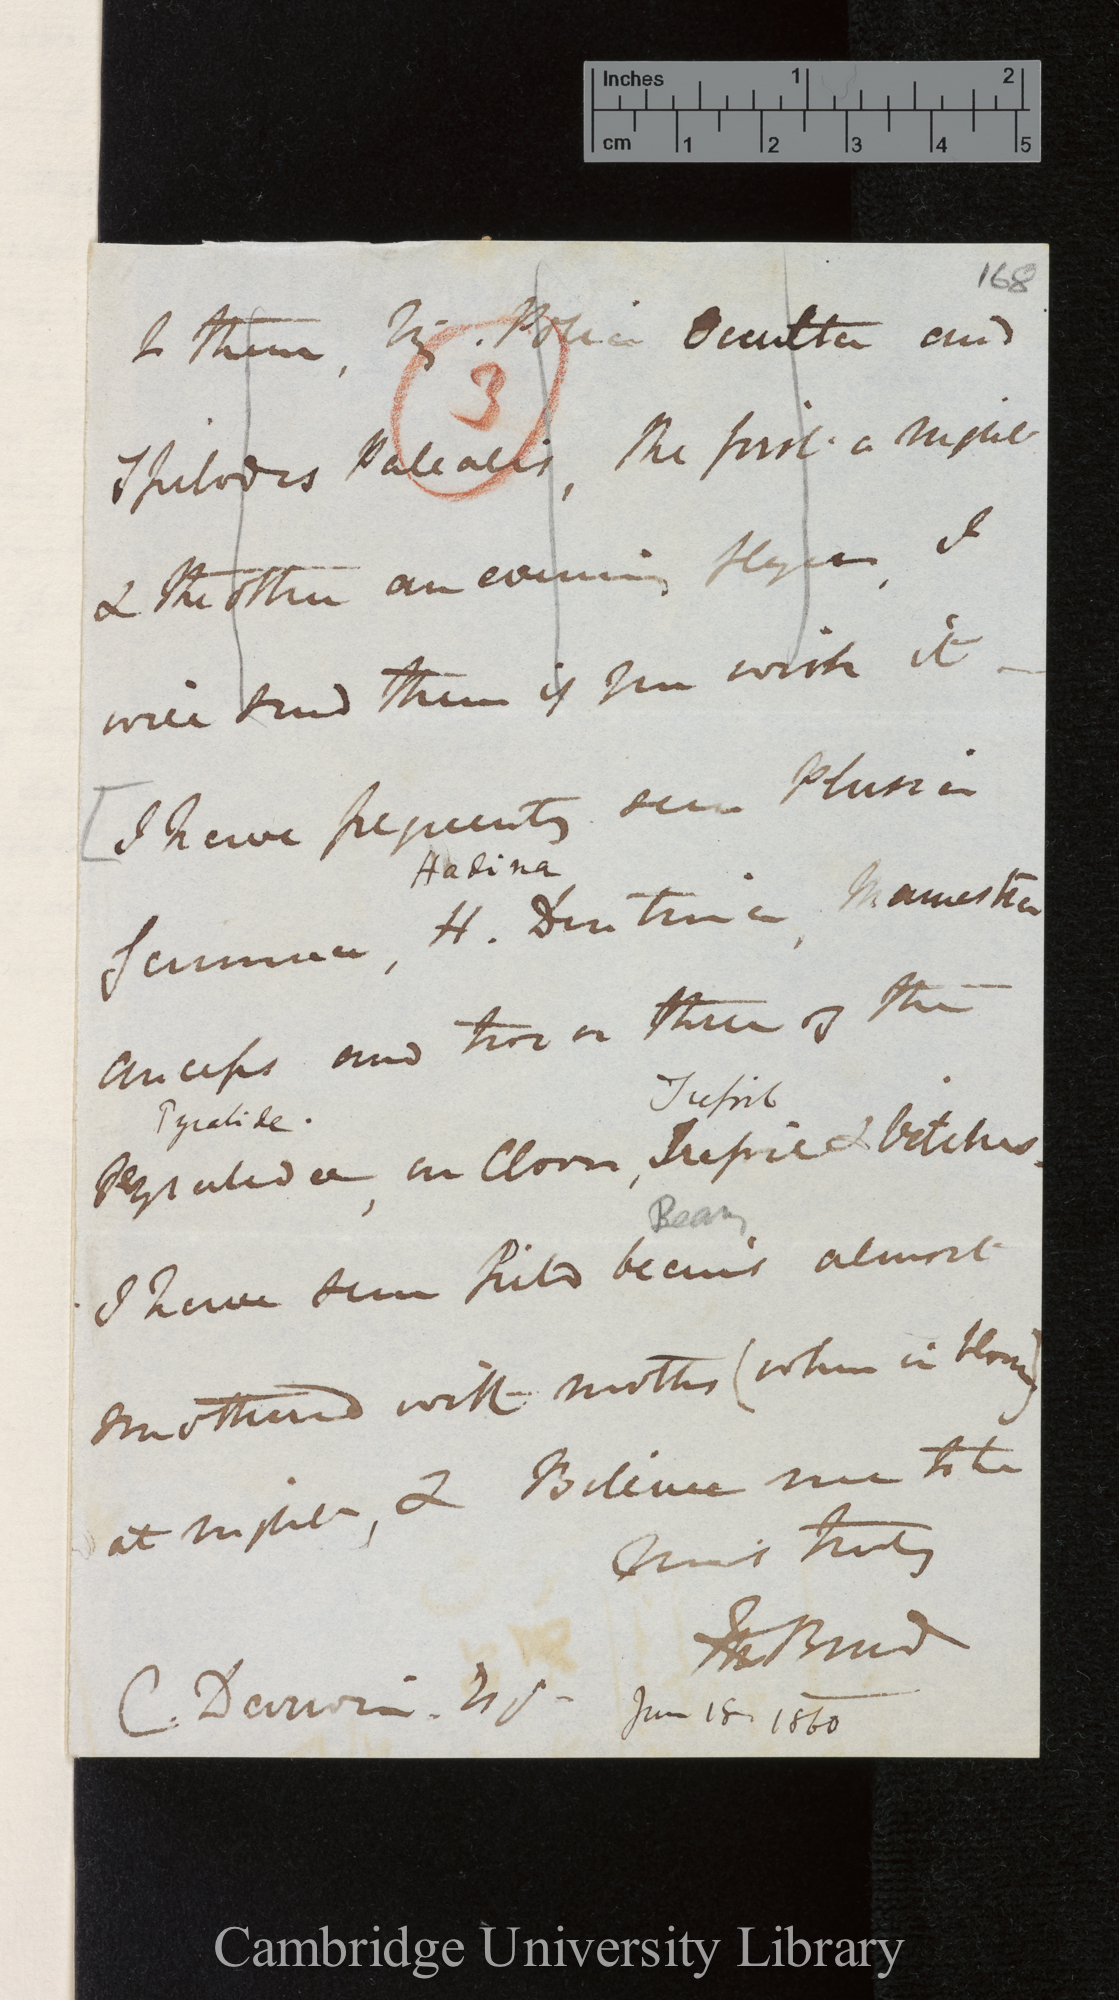 Inches 1 2
cm 1 2 3 4 5
168
to them, viz. Polia Occulta and
3
Spilodes Palealis, the first a night
& the other an evening flyer, I
will send them if you wish it –
[I have frequently seen Plusia
Hadina
Gamma, H. Dentina, Mamestra
anceps and two or three of the
Pyralidæ. Trefoil
Pyralidæ, on Clover, Trefoil & Vetches.
Beans
I have seen field beans almost
smothered with moths (when in bloom)
at night, & Believe me to be
Yours truly
Bond
C. Darwin. Esq –
Jun 18. 1860
Cambridge University Library